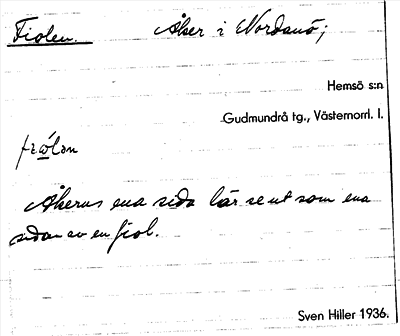 Fiolen. Åker i Nordanö;
Hemsö s:n
Gudmundrå tg., Västernorrl. l.
Åkerns ena sida lär se ut som ena
sidan av en fiol.
Sven Hiller 1936.